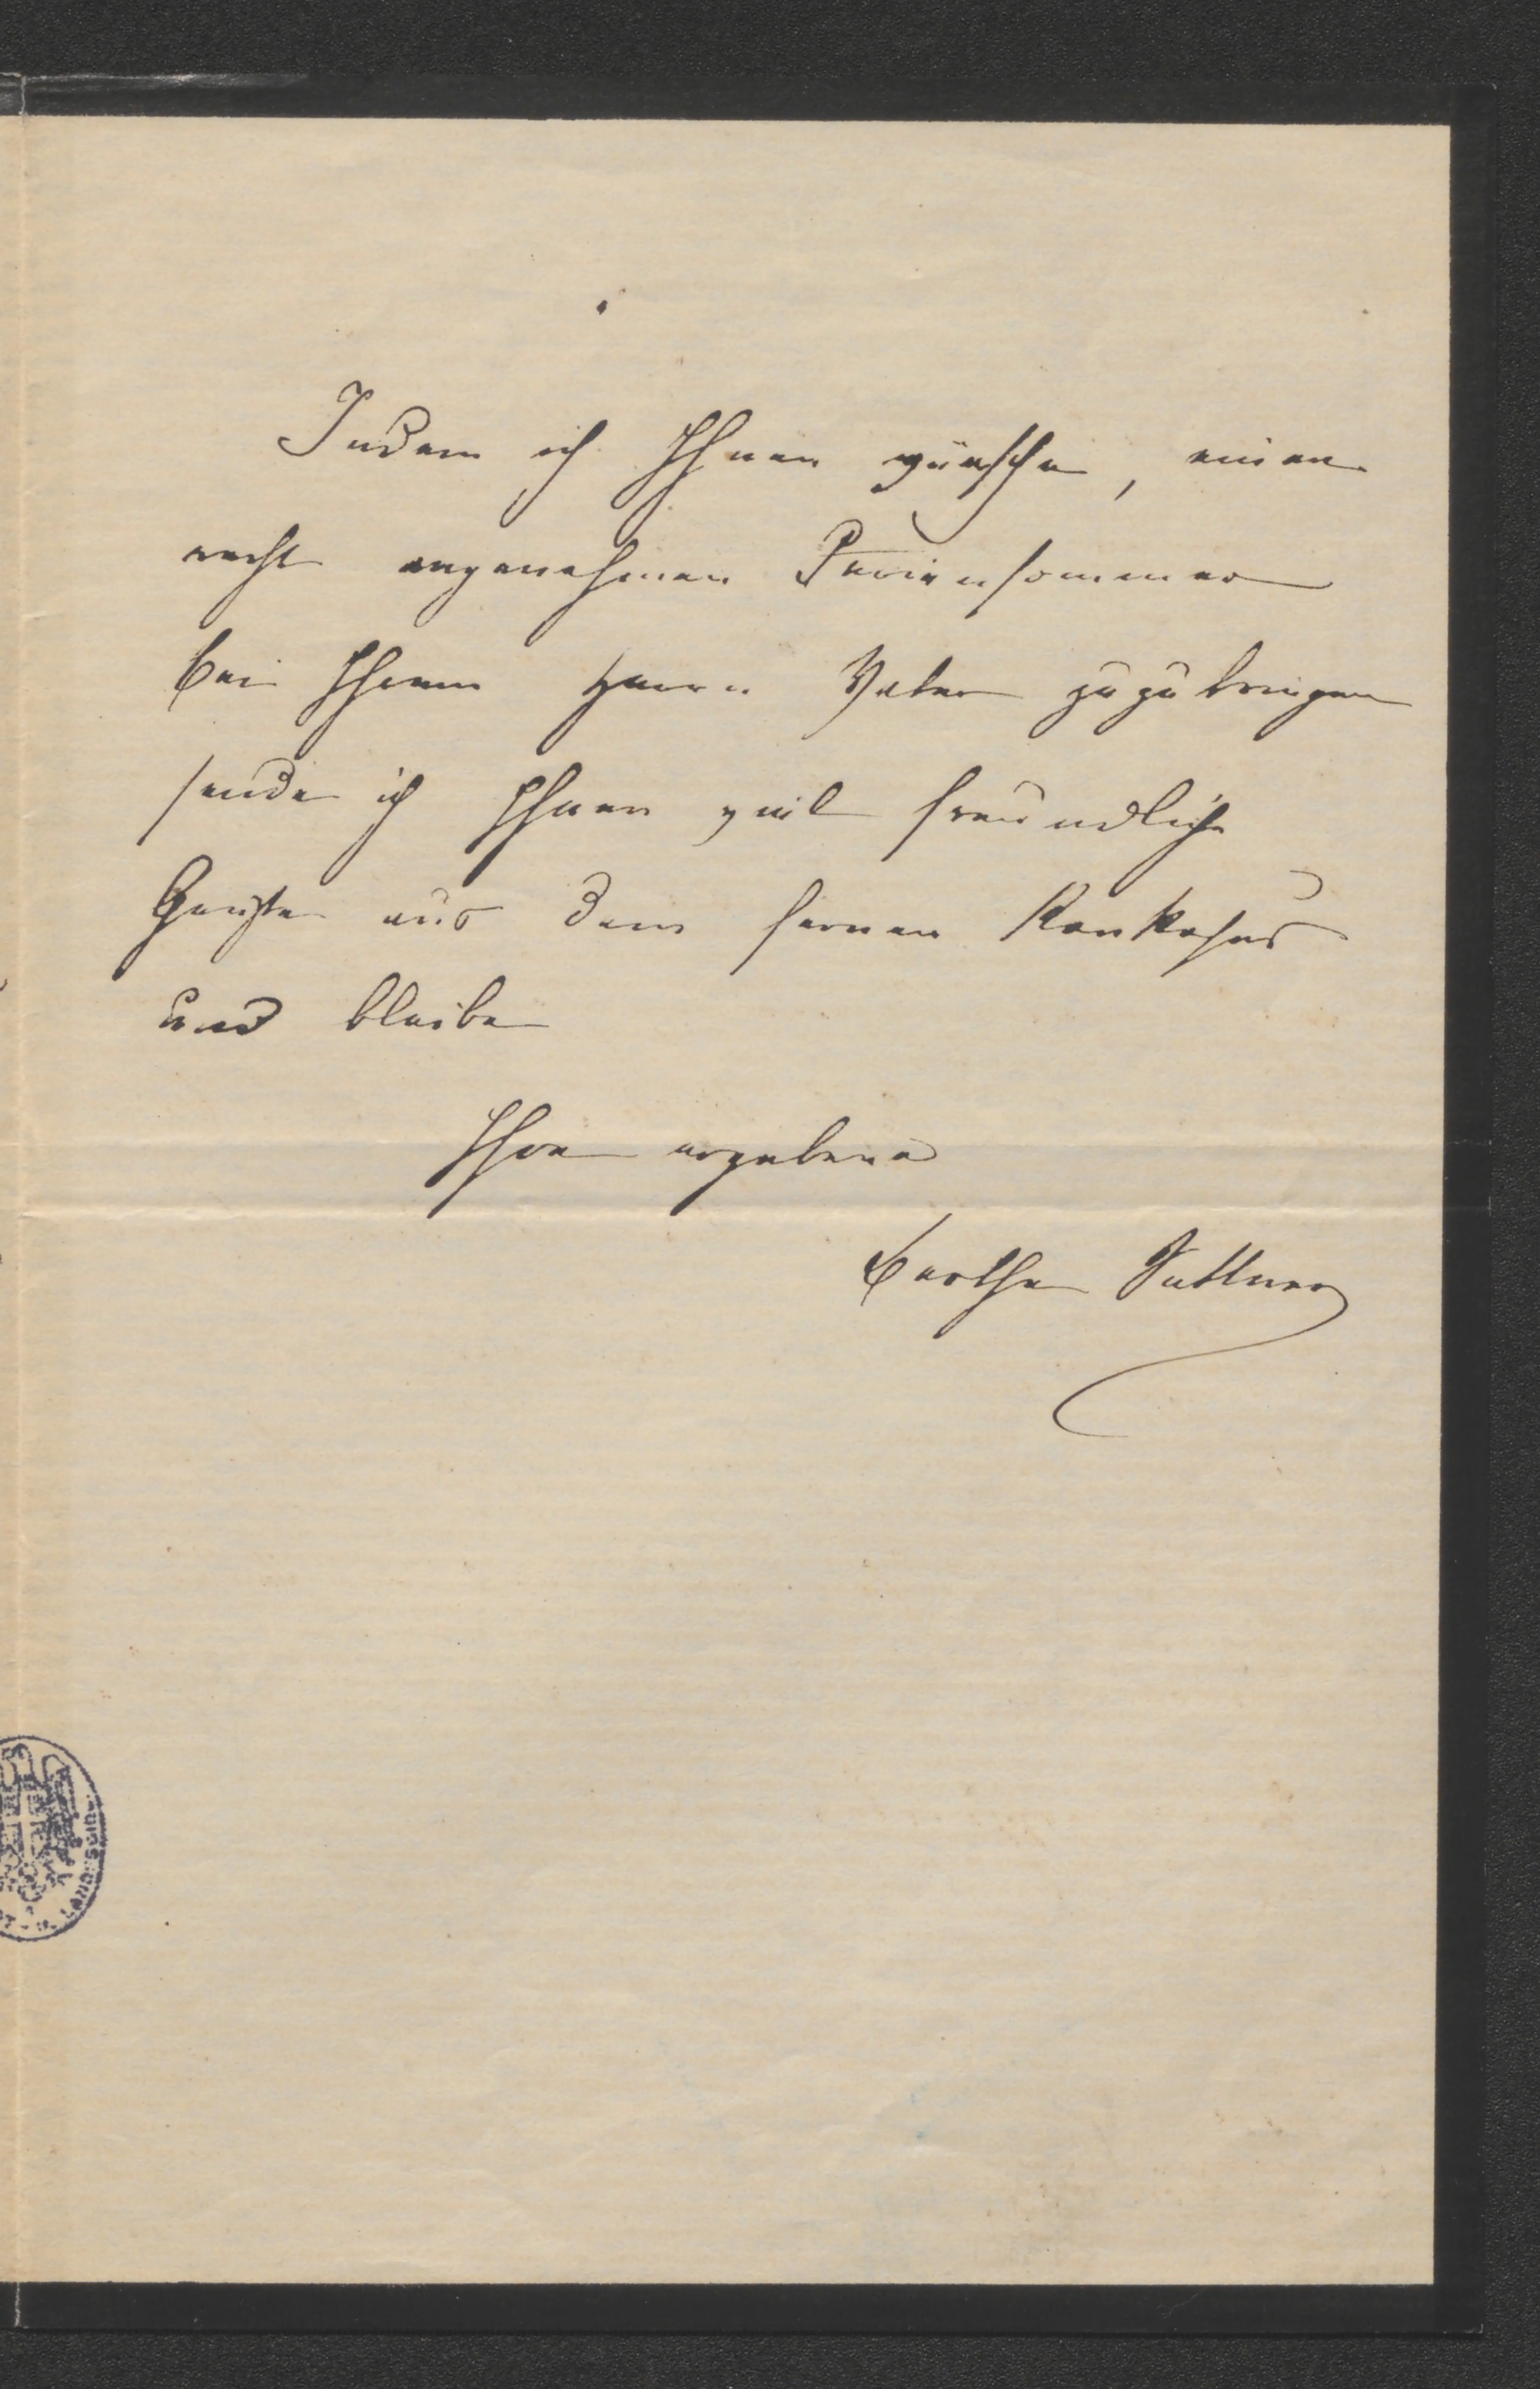 Indem ich Ihnen wünsche, einen
recht angenehmen Feriensommer
bei Ihrem Herrn Vater zuzubringen
sende ich Ihnen viel freundliche
Grüße aus dem fernen Kaukasus
und bleibe
Ihre ergebene
Bertha Suttner